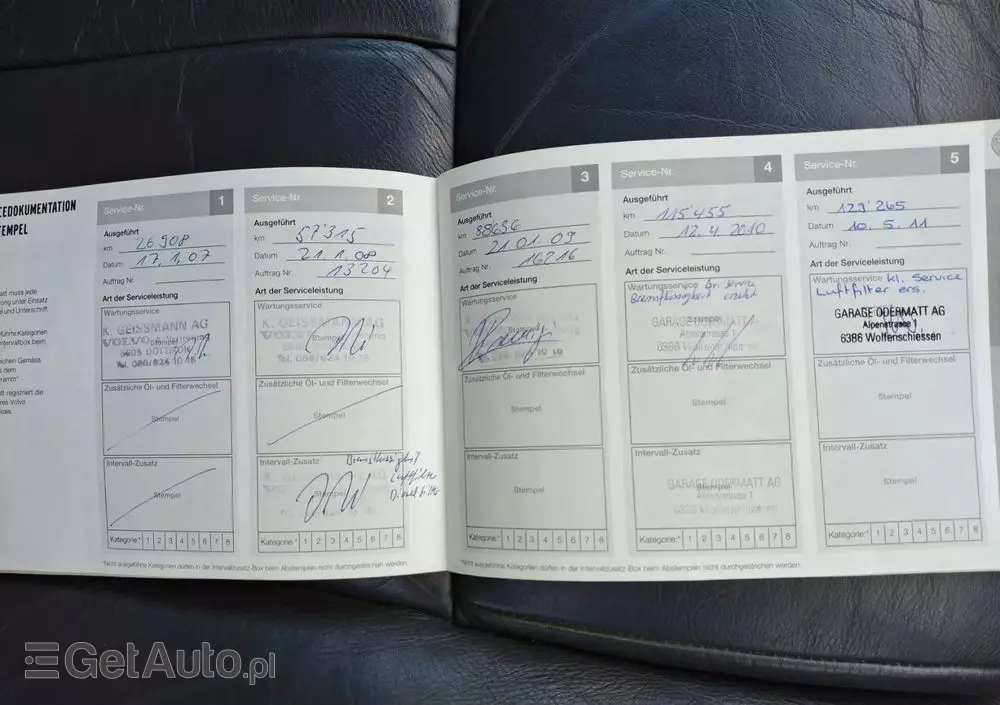 CEDOKUMENTATION
TEMPEL
att muss jede
ung unter Einsatz
und Unterschrift
führte Kategorien
ntervallbox beim
eichen Gemäss
dem
ramm"
tt registriert die
res Volvo
ices.
Service-Nr. 1
Ausgeführt
km 26908
Datum 17.1.07
Auftrag Nr.
Art der Serviceleistung
Wartungsservice
K. GEISSMANN AG
VOLVO
Stempel
Zusätzliche Öl- und Filterwechsel
Stempel
Intervall-Zusatz
Stempel
Kategorie:* 1 2 3 4 5 6 7 8
Service-Nr. 2
Ausgeführt
km 57'315
Datum 21.1.08
Auftrag Nr. 13204
Art der Serviceleistung
Wartungsservice
K. GEISSMANN AG
Stempel
Tel. 056/624 10 18
Zusätzliche Öl- und Filterwechsel
Stempel
Intervall-Zusatz
Bremsflüssigkeit
Luftfilter
Dieselfilter
Kategorie:* 1 2 3 4 5 6 7 8
Service-Nr. 3
Ausgeführt
km 88636
Datum 21.01.09
Auftrag Nr. 16216
Art der Serviceleistung
Wartungsservice
Stempel
10 18
Zusätzliche Öl- und Filterwechsel
Stempel
Intervall-Zusatz
Stempel
Kategorie:* 1 2 3 4 5 6 7 8
Service-Nr. 4
Ausgeführt
km 115'455
Datum 12.4.2010
Auftrag Nr.
Art der Serviceleistung
Wartungsservice
Bremsflüssigkeit ersetzt
Stempel
GARAGE ODERMATT AG
Alpenstrasse 1
6386 Wolfenschiessen
Zusätzliche Öl- und Filterwechsel
Stempel
Intervall-Zusatz
Stempel
GARAGE ODERMATT AG
Alpenstrasse 1
6386 Wolfenschiessen
Kategorie:* 1 2 3 4 5 6 7 8
Service-Nr. 5
Ausgeführt
km 129'265
Datum 10.5.11
Auftrag Nr.
Art der Serviceleistung
Wartungsservice kl. Service
Luftfilter ers.
GARAGE ODERMATT AG
Alpenstrasse 1
6386 Wolfenschiessen
Zusätzliche Öl- und Filterwechsel
Stempel
Intervall-Zusatz
Stempel
Kategorie:* 1 2 3 4 5 6 7 8
*Nicht ausgeführte Kategorien dürfen in der Intervallzusatz-Box beim Abstempeln nicht durchgestrichen werden.
*Nicht ausgeführte Kategorien dürfen in der Intervallzusatz-Box beim Abstempeln nicht durchgestrichen werden.
GetAuto.pl